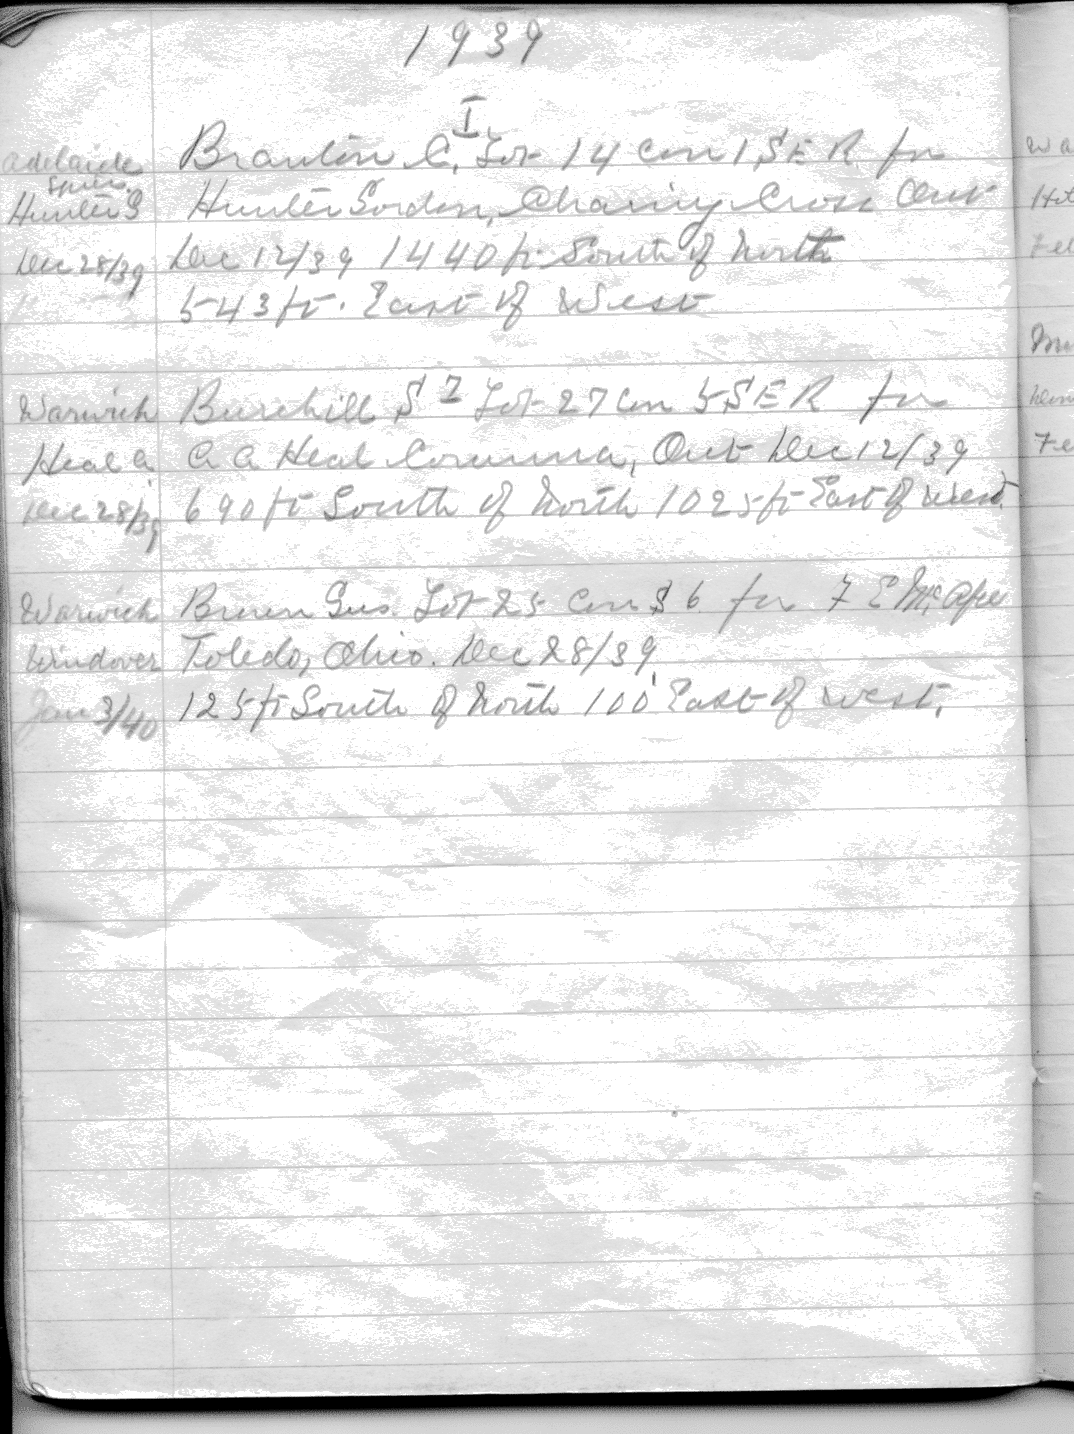 1939
I
Adelaide Branton C, Lot 14 Con 1, SER for
Hunter G Hunter Gordon, Charing Cross Ont
Dec 28/39 Dec 12/39 1440 ft South of North
543 ft. East of West
Warwick Burchill S Lot 27 Con 5 SER for
Heal A A A Heal Corunna, Ont Dec 12/39
Dec 28/39 690 ft South of North 1025 ft East of West.
Warwick Gus. Lot 25 Con S 6 for F E
Windover Toledo, Ohio. Dec 28/39
Jan 3/40 125 ft South of North 100' East of West.
Wa
Fe